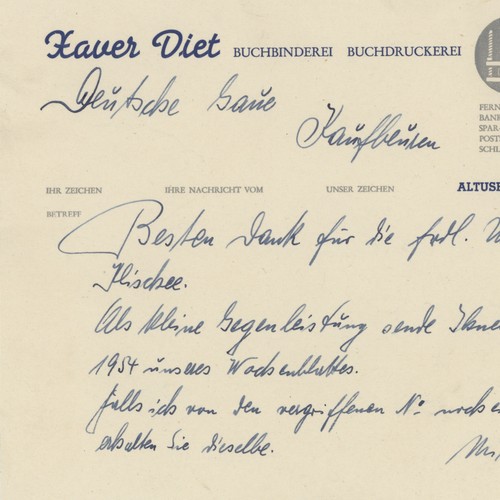 Xaver Diet BUCHBINDEREI BUCHDRUCKEREI
Deutsche Gaue
Kaufbeuren
FERN
BANK
SPAR
POST
SCHL
IHR ZEICHEN IHRE NACHRICHT VOM UNSER ZEICHEN ALTUS
BETREFF
Besten Dank für die frdl.
Als kleine Gegenleistung sende Ihne
1954 unseres Wochenblattes.
Falls ich von den vergriffenen No noch e
erhalten Sie dieselbe.
Mit